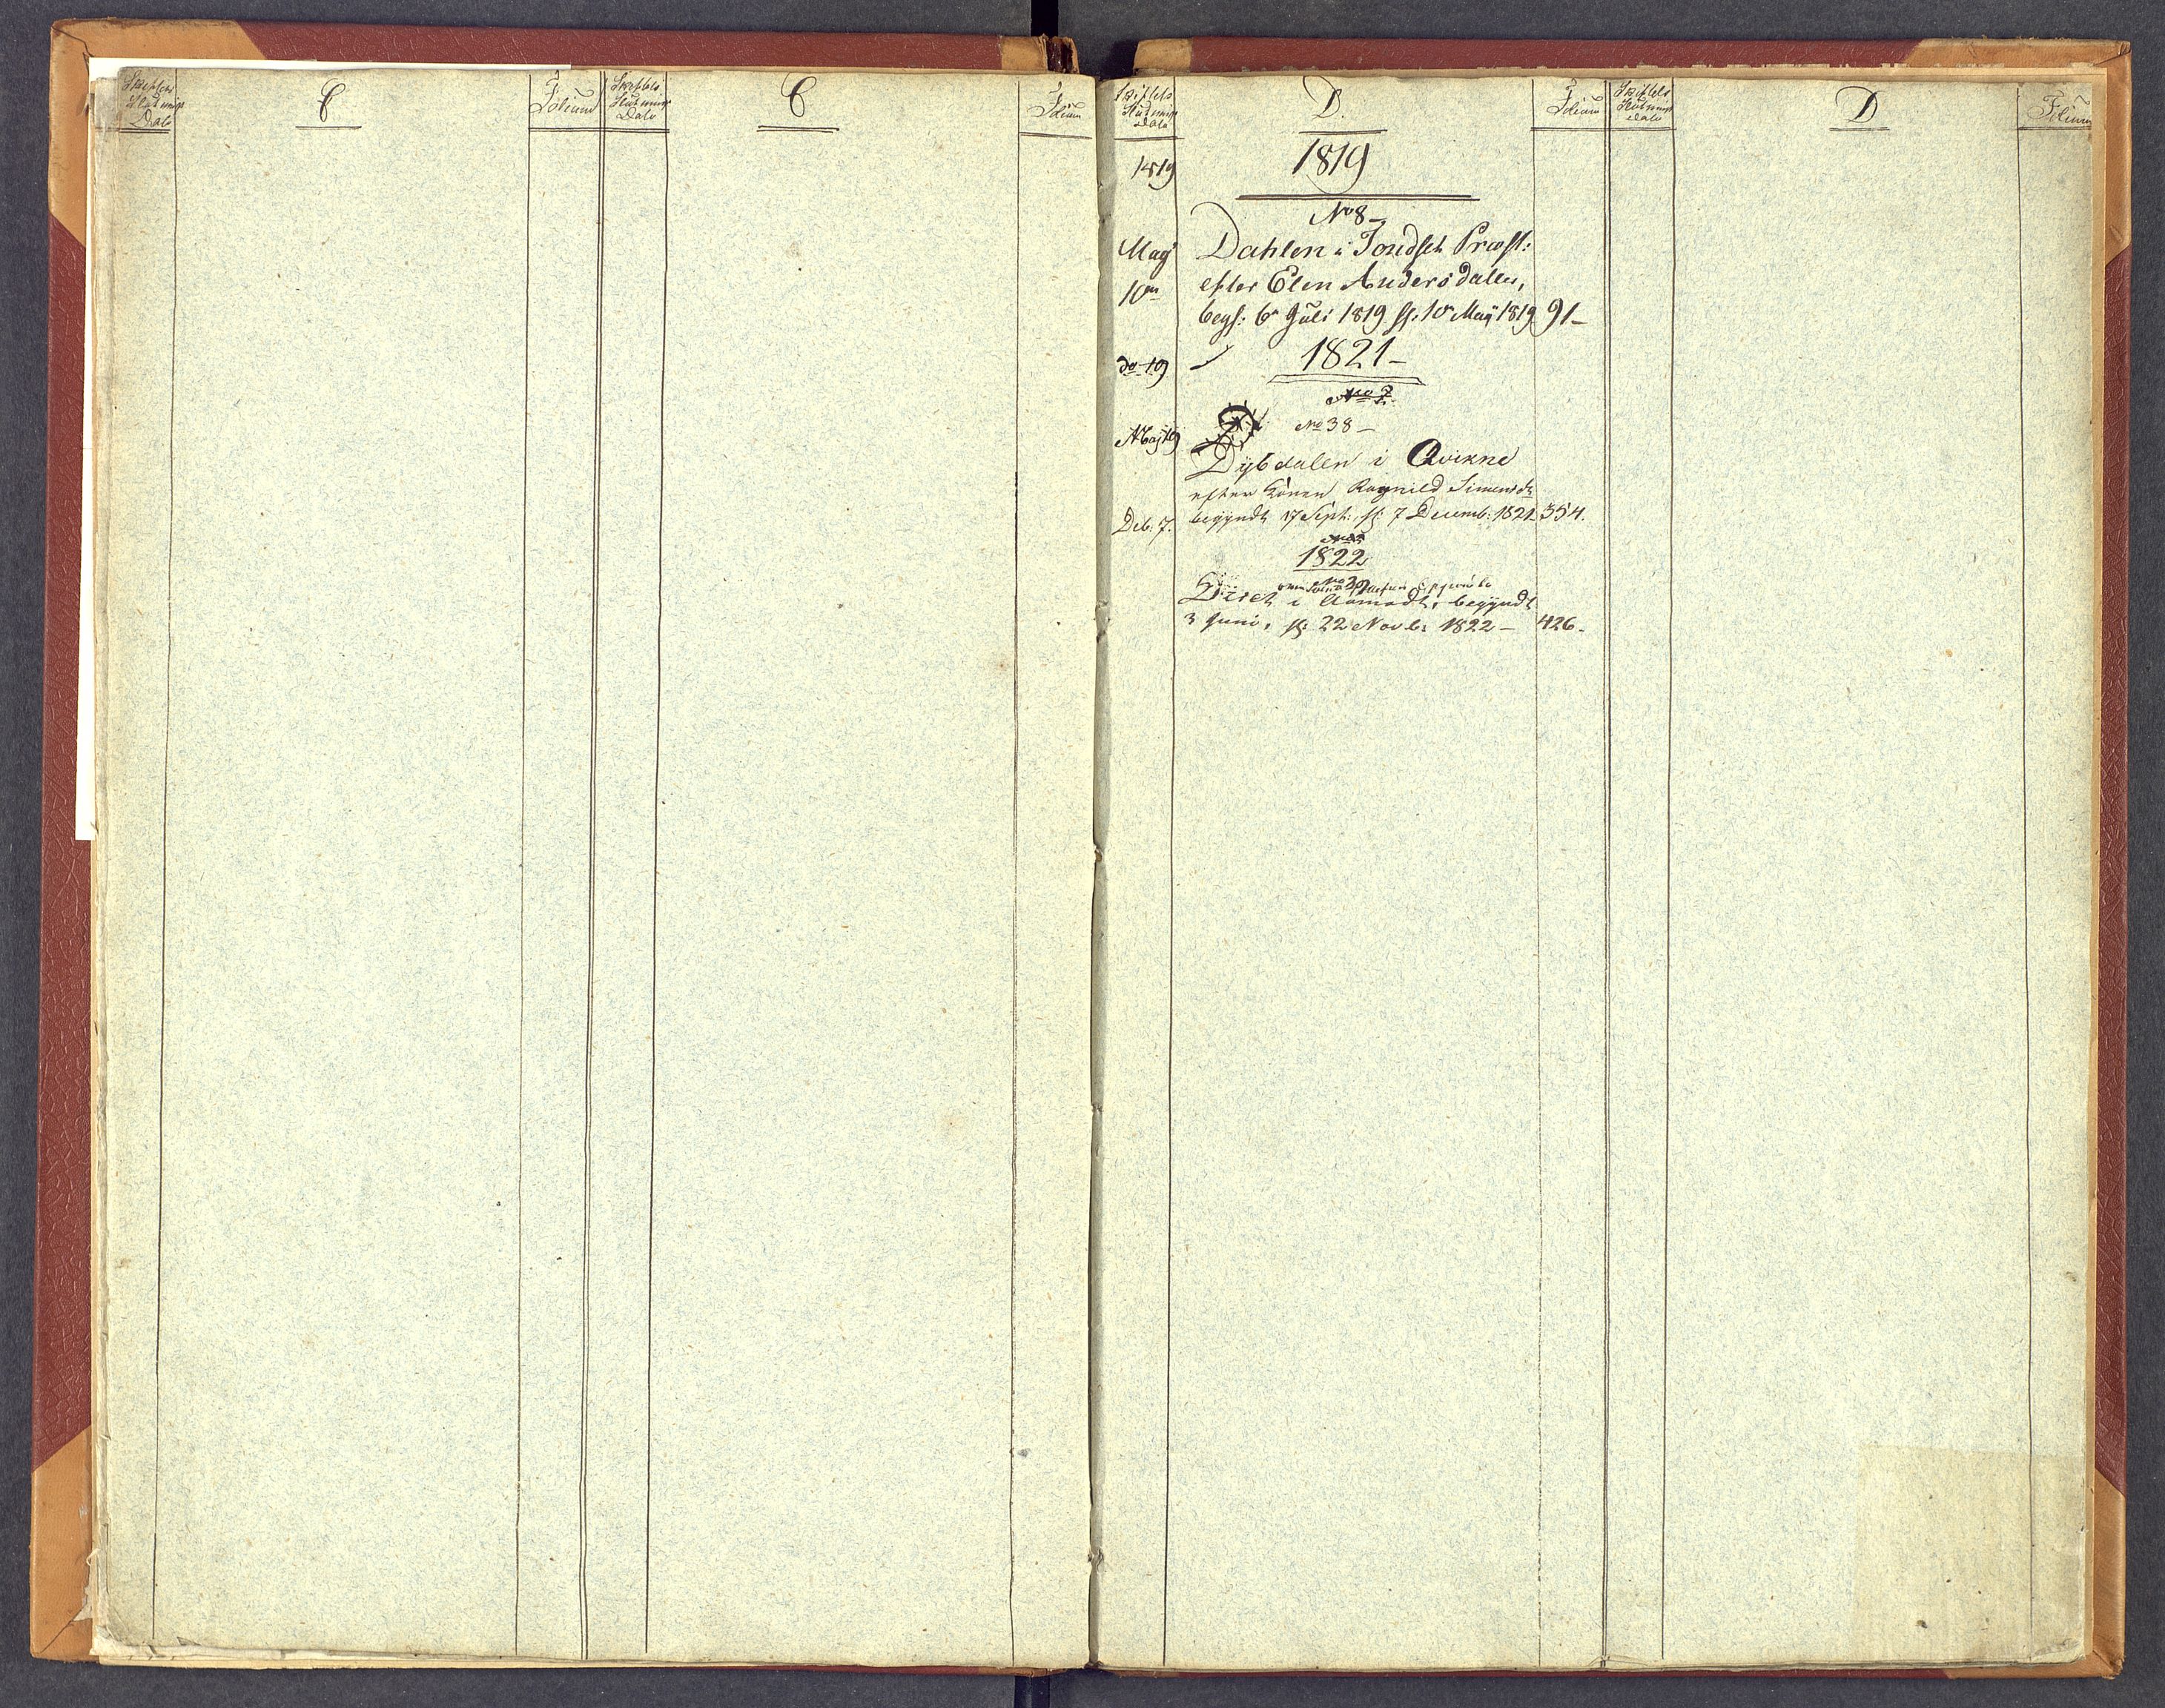 Skiftets
Slutnings
Dato
C
Folium
Skiftets
Slutnings
Dato
C
Folium
Skiftets
Slutnings
Dato
D.
Folium
Skiftets
Slutnings
Dato
D
Folium
1819
1819
No 8-
May Dahlen i Tondseth Præst:
10de efter Elen Andersdatter,
begf: 6te Juli 1819 sl: 10 May 1819 91-
do 19 1821-
No 38-
Dÿbdalen i Qvikne
efter Konen Ragnild Simensdtr
Deb: 7. begÿndt 17 Sept: sl: 7 Decemb: 1821 354.
1822
i Aamodt, begÿndt
3 Juni, sl: 22 Novb: 1822- 426-